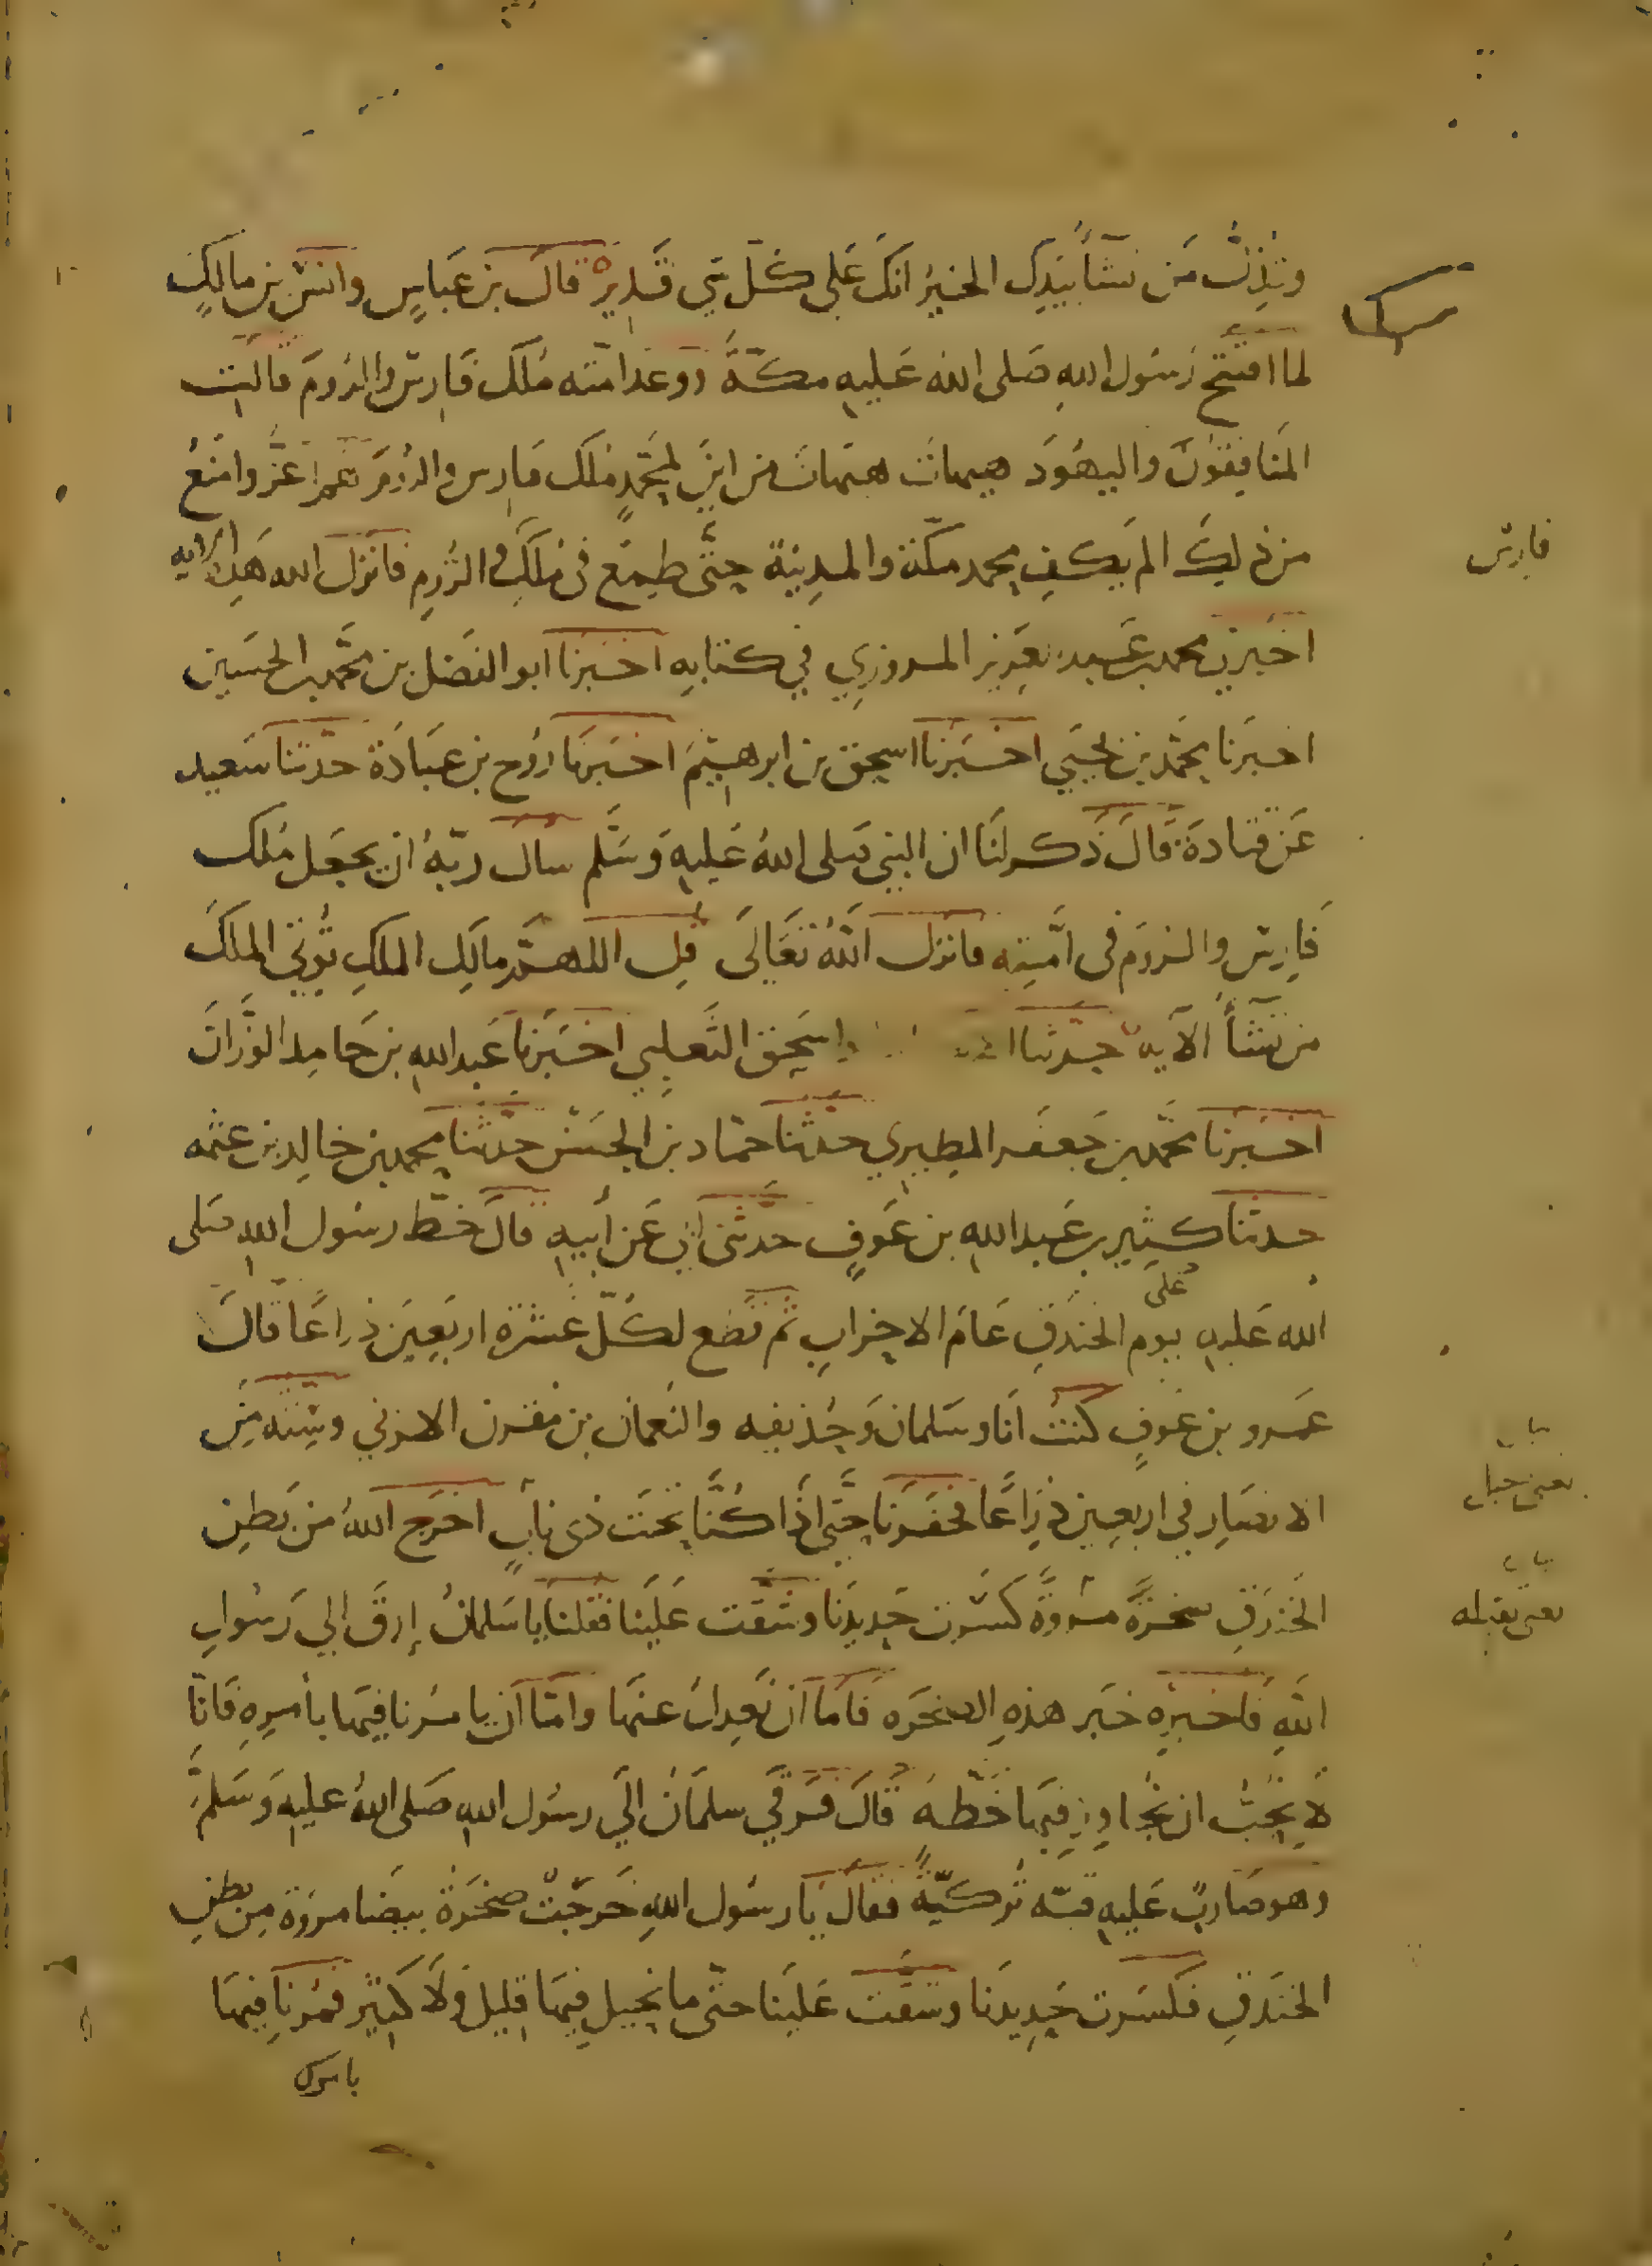 وتذل من تشأ بيدك الخير انك على كل شي قدير قال بن عباس وانس بن مالك
لما افتتح رسول الله صلى الله عليه مكة ووعد امته ملك فارس والروم قالت
المنافقون واليهود هيهات هيهات من اين لمحمد ملك فارس والروم هم اعز وامنع
فارس
من ذلك الم يكف محمد مكة والمدينة حتى طمع في ملك الروم فانزل الله هذه الايه
اخبرني محمد بن عبد العزيز المروزي في كتابه اخبرنا ابو الفضل بن محمد بن الحسين
اخبرنا محمد بن يحيى اخبرنا اسحق بن ابرهيم اخبرنا روح بن عبادة حدثنا سعيد
عن قتادة قال ذكر لنا ان النبي صلى الله عليه وسلم سال ربه ان يجعل ملك
فارس والروم في امته فانزل الله تعالى قل اللهم مالك الملك تؤتي الملك
من تشأ الآيه حدثنا اسحق الثعلبي اخبرنا عبد الله بن حامد الوزان
اخبرنا محمد بن جعفر المطيري حدثنا حماد بن الحسن حدثنا محمد بن خالد بن عثمه
حدثنا كثير بن عبد الله بن عوف حدثني ابي عن أبيه قال خط رسول الله صلى
على
الله عليه يوم الخندق عام الاحزاب ثم قطع لكل عشرة اربعين ذراعا قال
عمرو بن عوف كنت انا وسلمان وحذيفه والنعمان بن مقرن المزني وستة من
يعني جبل
الانصار في اربعين ذراعا فحفرنا حتى اذا كنا تحت ذي ناب اخرج الله من بطن
الخندق صخرة مروة كسرت حديدنا وشقت علينا فقلنا يا سلمان إرق الي رسول
الله فاخبره خبر هذه الصخره فاما ان نعدل عنها واما ان يامرنا فيها بأمره فانا
لا نحب ان نجاوز فيها خطه قال فرقي سلمان الي رسول الله صلى الله عليه وسلم
وهو ضارب عليه قبه تركية فقال يا رسول الله خرجت صخرة بيضا مروة من بطن
الخندق فكسرت حديدنا وشقت علينا حتى ما نحيل فيها قليل ولا كثير فمرنا فيها
بامرك